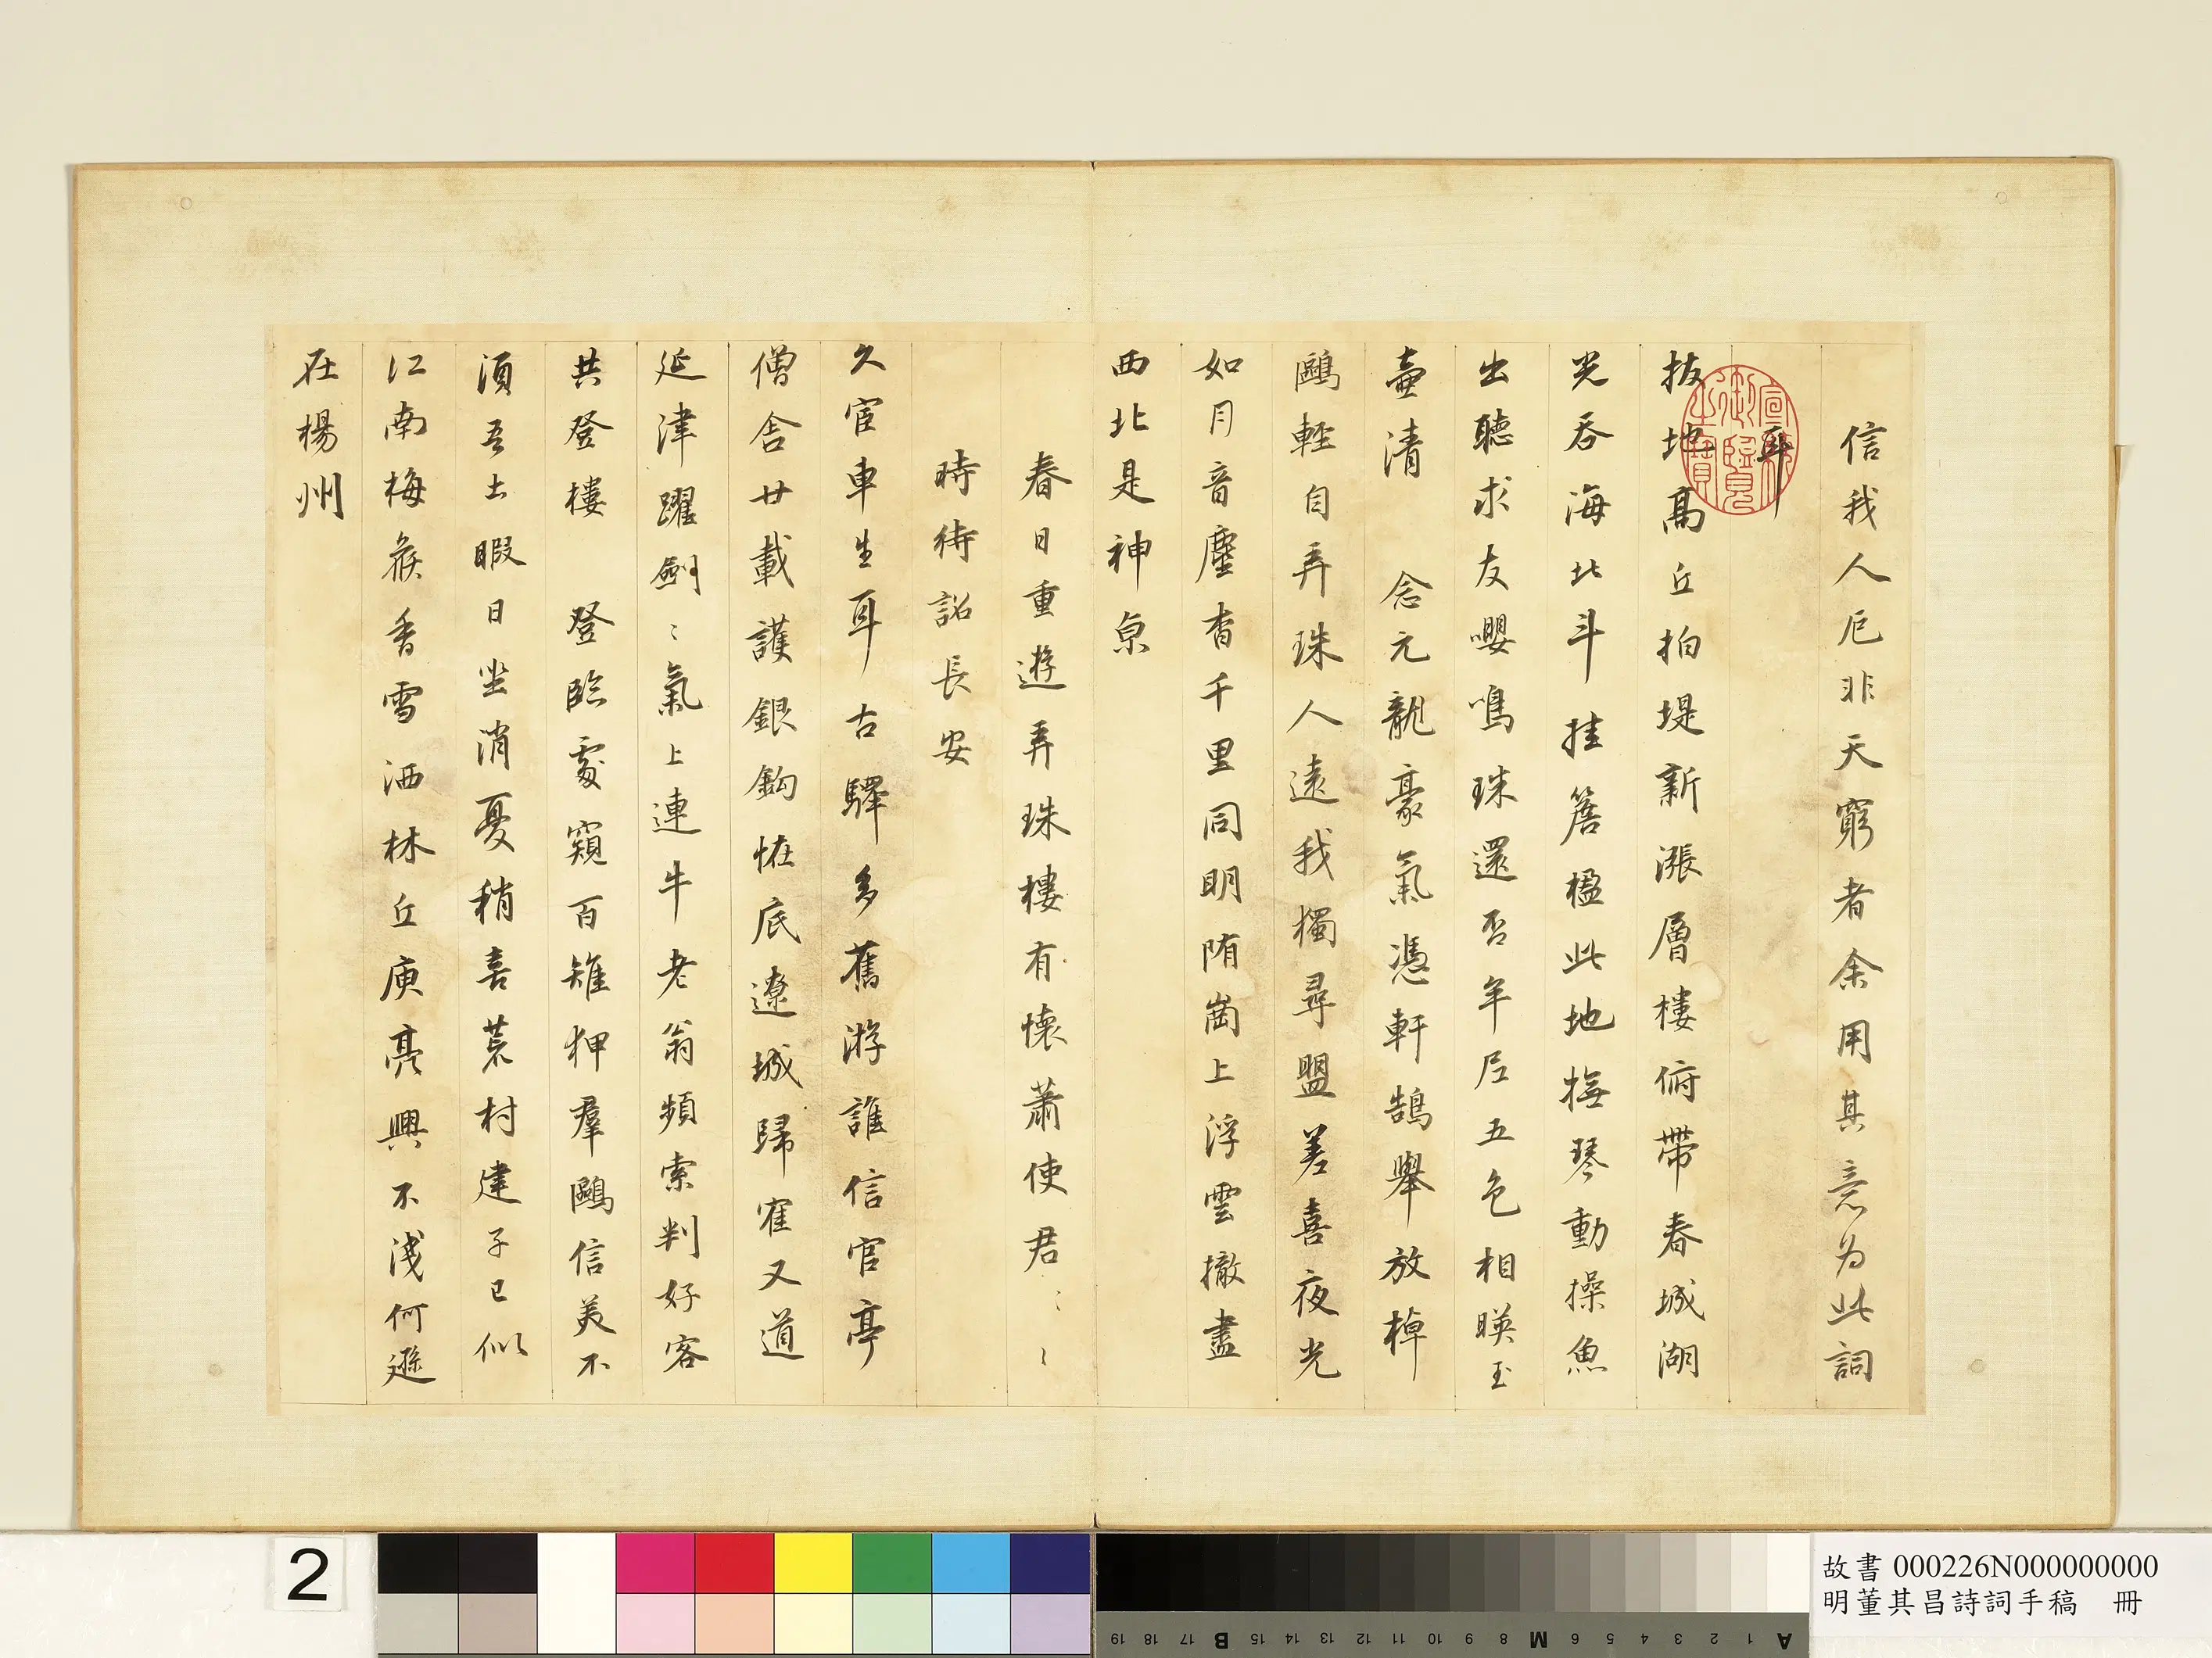 信我人厄非天窮者余用其意為此詞
耳
拔地高丘拍堤新漲層樓俯帶春城湖
光吞海北斗挂簷楹此地撫琴動操魚
出聽求友嚶鳴珠還否年居五色相暎玉
壷清　念元龍豪氣憑軒鵠舉放棹
鷗輕自弄珠人遠我獨尋盟差喜夜光
如月音塵杳千里同明陏崗上浮雲撤盡
西北是神京
春日重遊弄珠樓有懷蕭使君〻〻
時待詔長安
久宦車生耳古驛多舊游誰信官亭
僧舍廿載護銀鈎恠底遼城歸寉又道
延津躍劍〻氣上連牛老翁頻索判好客
共登樓　登臨處窺百雉狎羣鷗信美不
須吾土暇日坐消憂稍喜荒村建子已似
江南梅候香雪洒林丘庾亮興不淺何遜
在楊州
2
故書 000226N000000000
明董其昌詩詞手稿　冊
A 1 2 3 4 5 6 M 8 9 10 11 12 13 14 15 B 17 18 19